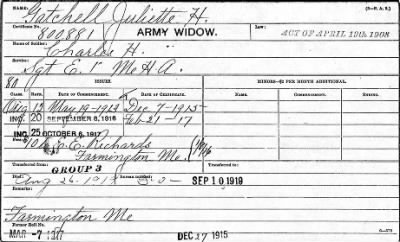 Name: Gatchell Juliette H. (3—R. A. S.)
Certificate No. 800881 ARMY WIDOW. Law: ACT OF APRIL 19th, 1908
Name of Soldier: Charles H. "
Service: Sgt E. 1" Me H A.
80 ISSUES MINORS—$2 PER MONTH ADDITIONAL
CLASS. RATE. DATE OF COMMENCEMENT. DATE OF
Orig 12 May 19-1913 Dec 7-1915
INC. 20 SEPTEMBER 8, 1916 Feb 21-17
INC. 25 OCTOBER 6, 1917
E. E. Richards
Farmington Me.
Transferred from GROUP 3 Transferred to
Died
Aug 26-1919 SEP 10 1919
Remarks
Farmington Me
Former Roll No.
MAR -7 1917 DEC 27 1915